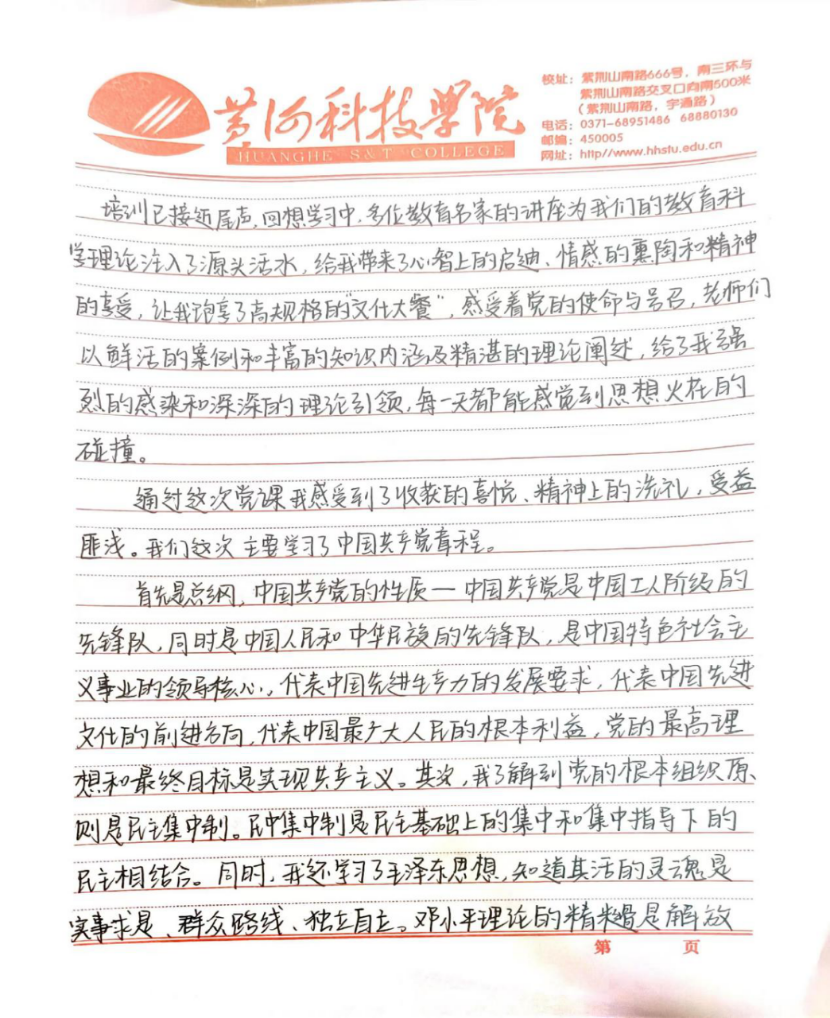 黄河科技学院
HUANGHE S&T COLLEGE
校址：紫荆山南路666号，南三环与
紫荆山南路交叉口向南500米
（紫荆山南路，宇通路）
电话：0371-68951486 68880130
邮编：450005
网址：http//www.hhstu.edu.cn
培训已接近尾声，回想学习中，多位教育名家的讲座为我们的教育科
学理论注入了源头活水，给我带来了心智上的启迪、情感的熏陶和精神
的享受，让我饱享了高规格的“文化大餐”，感受着党的使命与号召，老师们
以鲜活的案例和丰富的知识内涵及精湛的理论阐述，给了我强
烈的感染和深深的理论引领，每一天都能感觉到思想火花的
碰撞。
通过这次党课我感受到了收获的喜悦、精神上的洗礼，受益
匪浅。我们这次主要学习了中国共产党章程。
首先是总纲，中国共产党的性质—中国共产党是中国工人阶级的
先锋队，同时是中国人民和中华民族的先锋队，是中国特色社会主
义事业的领导核心，代表中国先进生产力的发展要求，代表中国先进
文化的前进方向，代表中国最广大人民的根本利益，党的最高理
想和最终目标是实现共产主义。其次，我了解到党的根本组织原
则是民主集中制。民中集中制是民主基础上的集中和集中指导下的
民主相结合。同时，我还学习了毛泽东思想，知道其活的灵魂是
实事求是、群众路线、独立自主。邓小平理论的精髓是解放
第 页